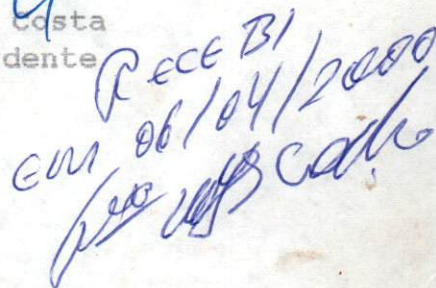 Costa
dente
RECEBI
EM 06/04/2000